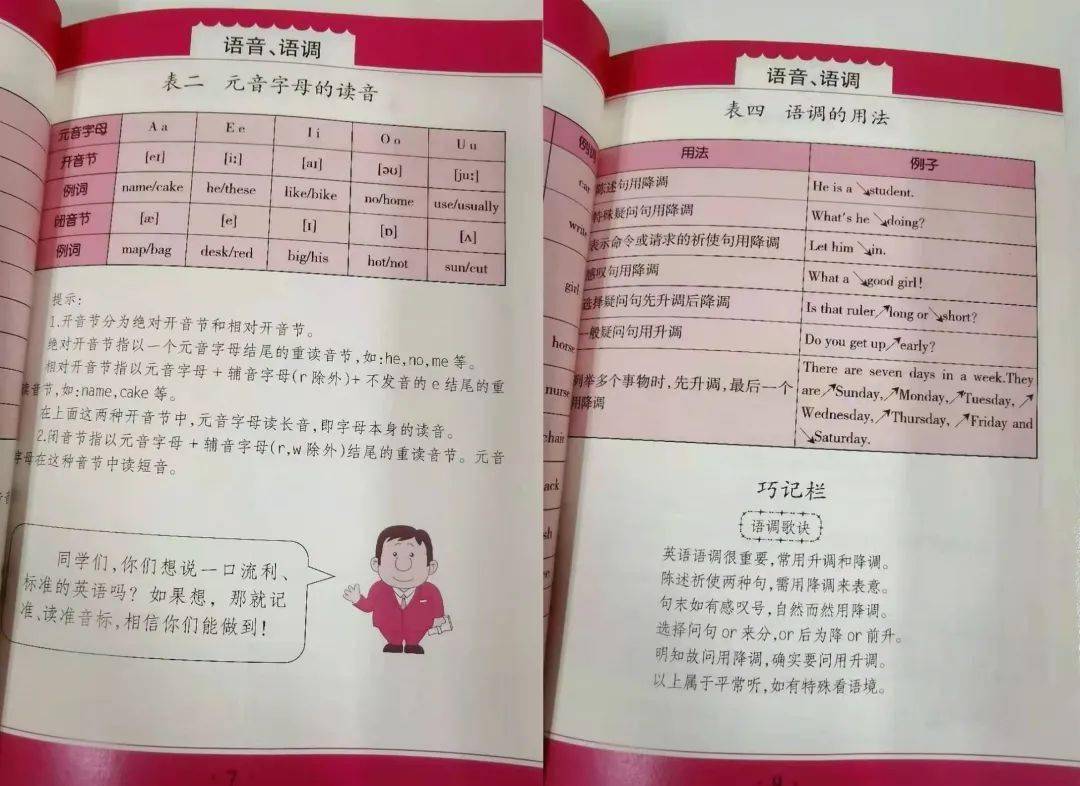 语音、语调
表二 元音字母的读音
元音字母 A a E e I i O o U u
开音节 [eɪ] [iː] [aɪ] [əʊ] [juː]
例词 name/cake he/these like/bike no/home use/usually
闭音节 [æ] [e] [ɪ] [ɒ] [ʌ]
例词 map/bag desk/red big/his hot/not sun/cut
提示:
1.开音节分为绝对开音节和相对开音节。
绝对开音节指以一个元音字母结尾的重读音节,如:he,no,me 等。
相对开音节指以元音字母 + 辅音字母(r 除外)+ 不发音的 e 结尾的重
读音节,如:name,cake 等。
在上面这两种开音节中,元音字母读长音,即字母本身的读音。
2.闭音节指以元音字母 + 辅音字母(r,w 除外)结尾的重读音节。元音
字母在这种音节中读短音。
同学们,你们想说一口流利、
标准的英语吗? 如果想, 那就记
准、读准音标,相信你们能做到!
7
语音、语调
表四 语调的用法
例词
car
write
girl
horse
nurse
chair
ack
sh
用法 例子
陈述句用降调 He is a ↘student.
特殊疑问句用降调 What's he ↘doing?
表示命令或请求的祈使句用降调 Let him ↘in.
感叹句用降调 What a ↘good girl!
选择疑问句先升调后降调 Is that ruler↗long or↘short?
一般疑问句用升调 Do you get up↗early?
列举多个事物时,先升调,最后一个
用降调
There are seven days in a week.They
are ↗Sunday,↗Monday,↗Tuesday, ↗
Wednesday,↗Thursday, ↗Friday and
↘Saturday.
巧记栏
语调歌诀
英语语调很重要,常用升调和降调。
陈述祈使两种句,需用降调来表意。
句末如有感叹号,自然而然用降调。
选择问句 or 来分,or 后为降 or 前升。
明知故问用降调,确实要问用升调。
以上属于平常听,如有特殊看语境。
9